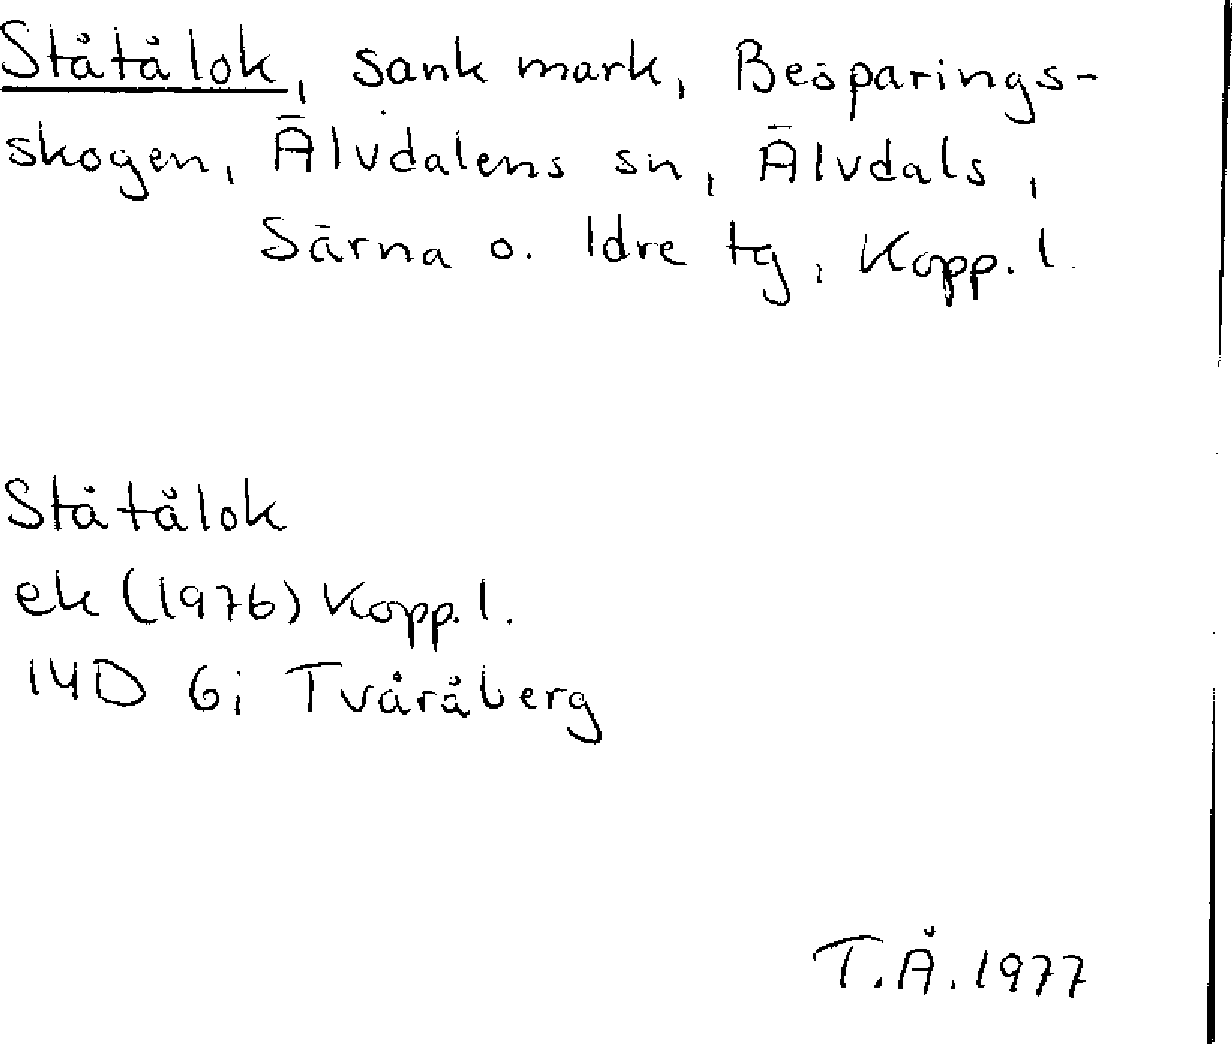 Ståtålok, sank mark, Besparings-
skogen, Älvdalens sn, Älvdals,
Särna o. Idre tg, Kopp. l.
Ståtålok
ek (1976) Kopp. l.
14D 6i Tvåråberg
T.Å. 1977